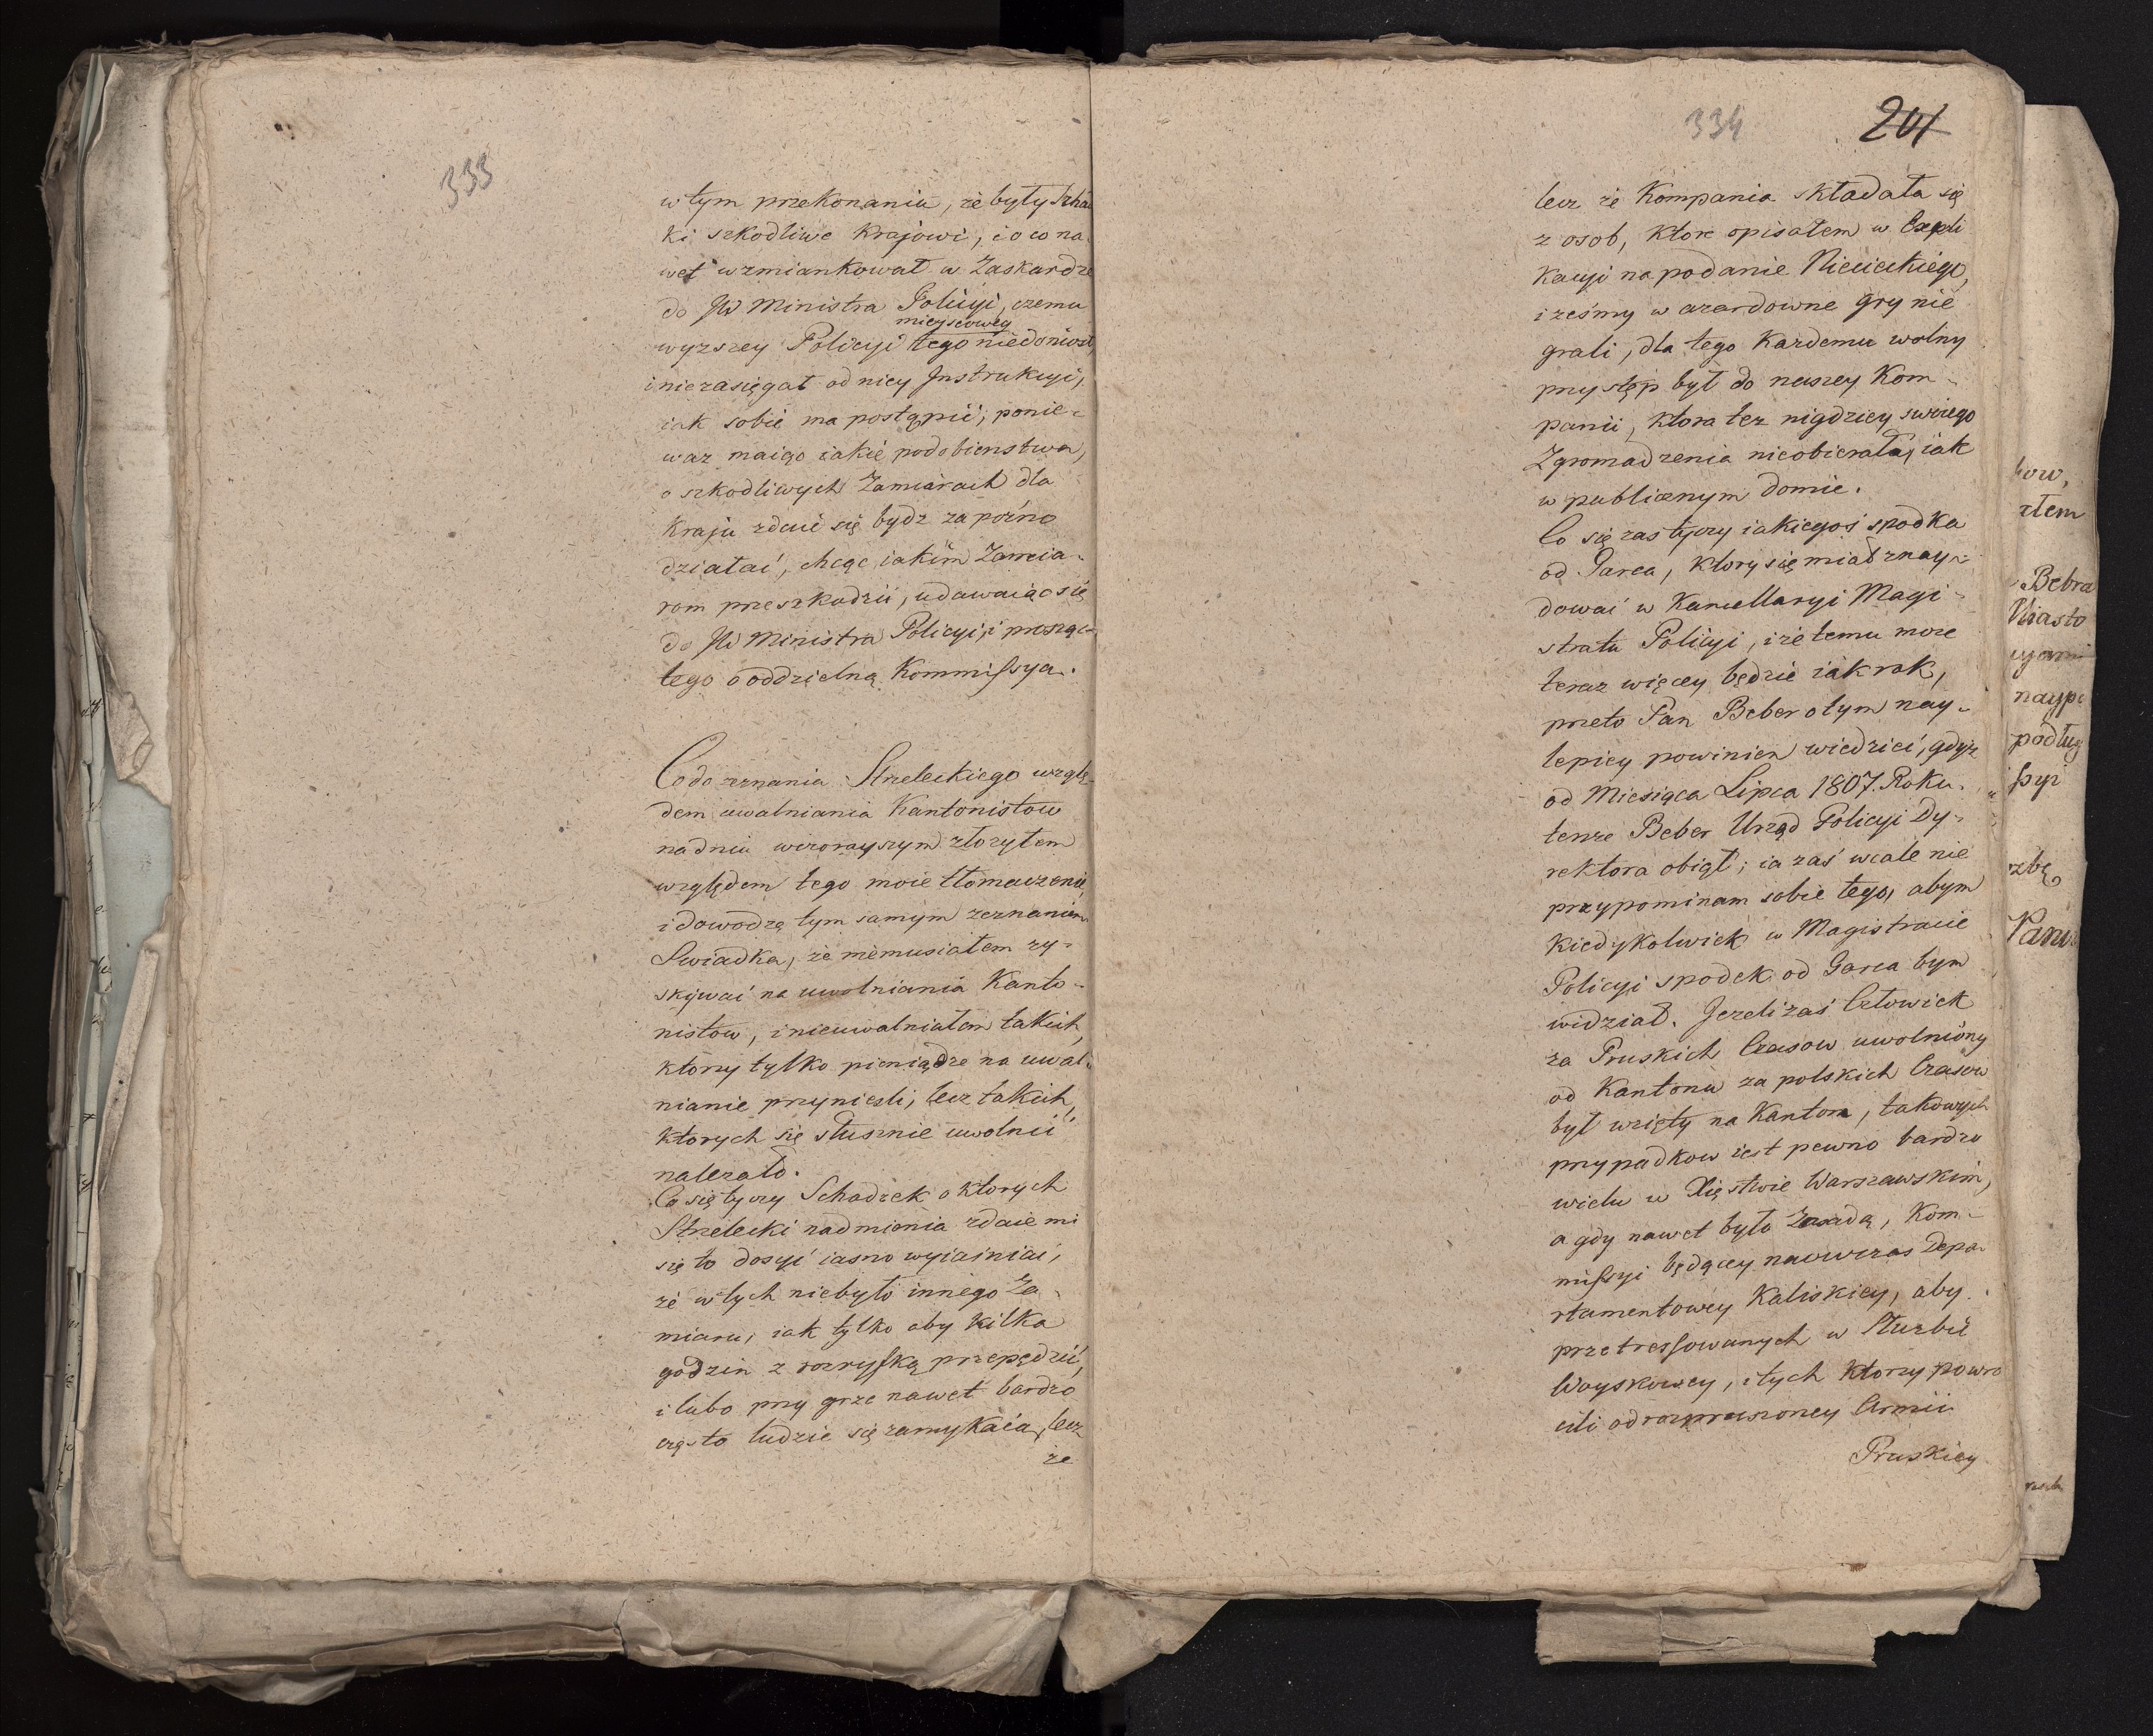 333
w tym przekonaniu, że były Szha
ki szkodliwe Krajowi, i o co na
wet wzmiankował w Zaskardze
do JW Ministra Policyi, czemu
mieyscowey
wyzszey Policyi tego niedoniosł,
i niezasięgał od niey Jnstrukcyi,
iak sobie ma postąpić; ponie-
waz maiąc iakie podobienstwa,
o szkodliwych Zamiarach dla
Kraju zdaie się bydz za pozno
działać, chcąc iakim Zamia-
rom przeszkodzić, udawaiąc się
do JW Ministra Policyi, i prosząc
tego o oddzielną Kommissya.
Co do zeznania Strzeleckiego wzglę-
dem uwalniania Kantonistow
na dniu wczorayszym złozyłem
względem tego moie tłomaczenie,
i dowodzą tym samym zeznaniem
Swiadka, że niemusiałem zy-
skiwać na uwolniania Kanto-
nistow, i nieuwalniałem takich,
ktorzy tylko pieniądze na uwal-
nianie przyniesli, lecz takich,
ktorych się słusznie uwolnić
nalezało.
Co się tyczy Schadzek o ktorych
Strzelecki nadmienia zdaie mi
się to dosyć iasno wyiasniać,
że w tych niebyło innego Za-
miaru, iak tylko aby kilka
godzin z rozrysską przepędzić,
i lubo przy grze nawet bardzo
często ludzie się zamykaią, lecz
ze
334 201
lecz że Kompania składała się
z osob, ktore opisałem w Expli
kacyi na podanie Niecieckiego,
i ześmy w azardowne gry nie
grali, dla tego Kazdemu wolny
przystęp był do naszey Kom-
panii, ktora tez nigdziey swoiego
Zgromadzenia nieobierała, iak
w publicznym domie.
Co się zas tyczy iakiegoś spodka
od Garca, ktory się miał znay-
dować w Kancellaryi Magi-
stratu Policyi, i że temu może
teraz więcey będzie iak rok,
przeto Pan Beber o tym nay-
lepiey powinien wiedzieć, gdyż
od Miesiąca Lipca 1807. Roku.
tenze Beber Urząd Policyi Dy-
rektora obiął; ia zaś wcale nie
przypominam sobie tego, abym
kiedykolwiek w Magistracie
Policyi spodek od Garca bym
widział. Jezeli zaś Człowiek
za Pruskich Czasow uwolniony
od Kantonu za polskich Czasow
był wzięty na Kanton, takowych
przypadkow iest pewno bardzo
wielu w Xięstwie Warszawskim,
a gdy nawet było Zasadą, Kom-
missyi będącey naowczas Depa-
rtamentowey Kaliskiey, aby
przetressowanych w Słuzbie
Woyskowey, i tych ktorzy powro
cili od rozproszoney Armii
Pruskiey
kow,
złem
Bebra
Miasto
naype
podług
ssyi